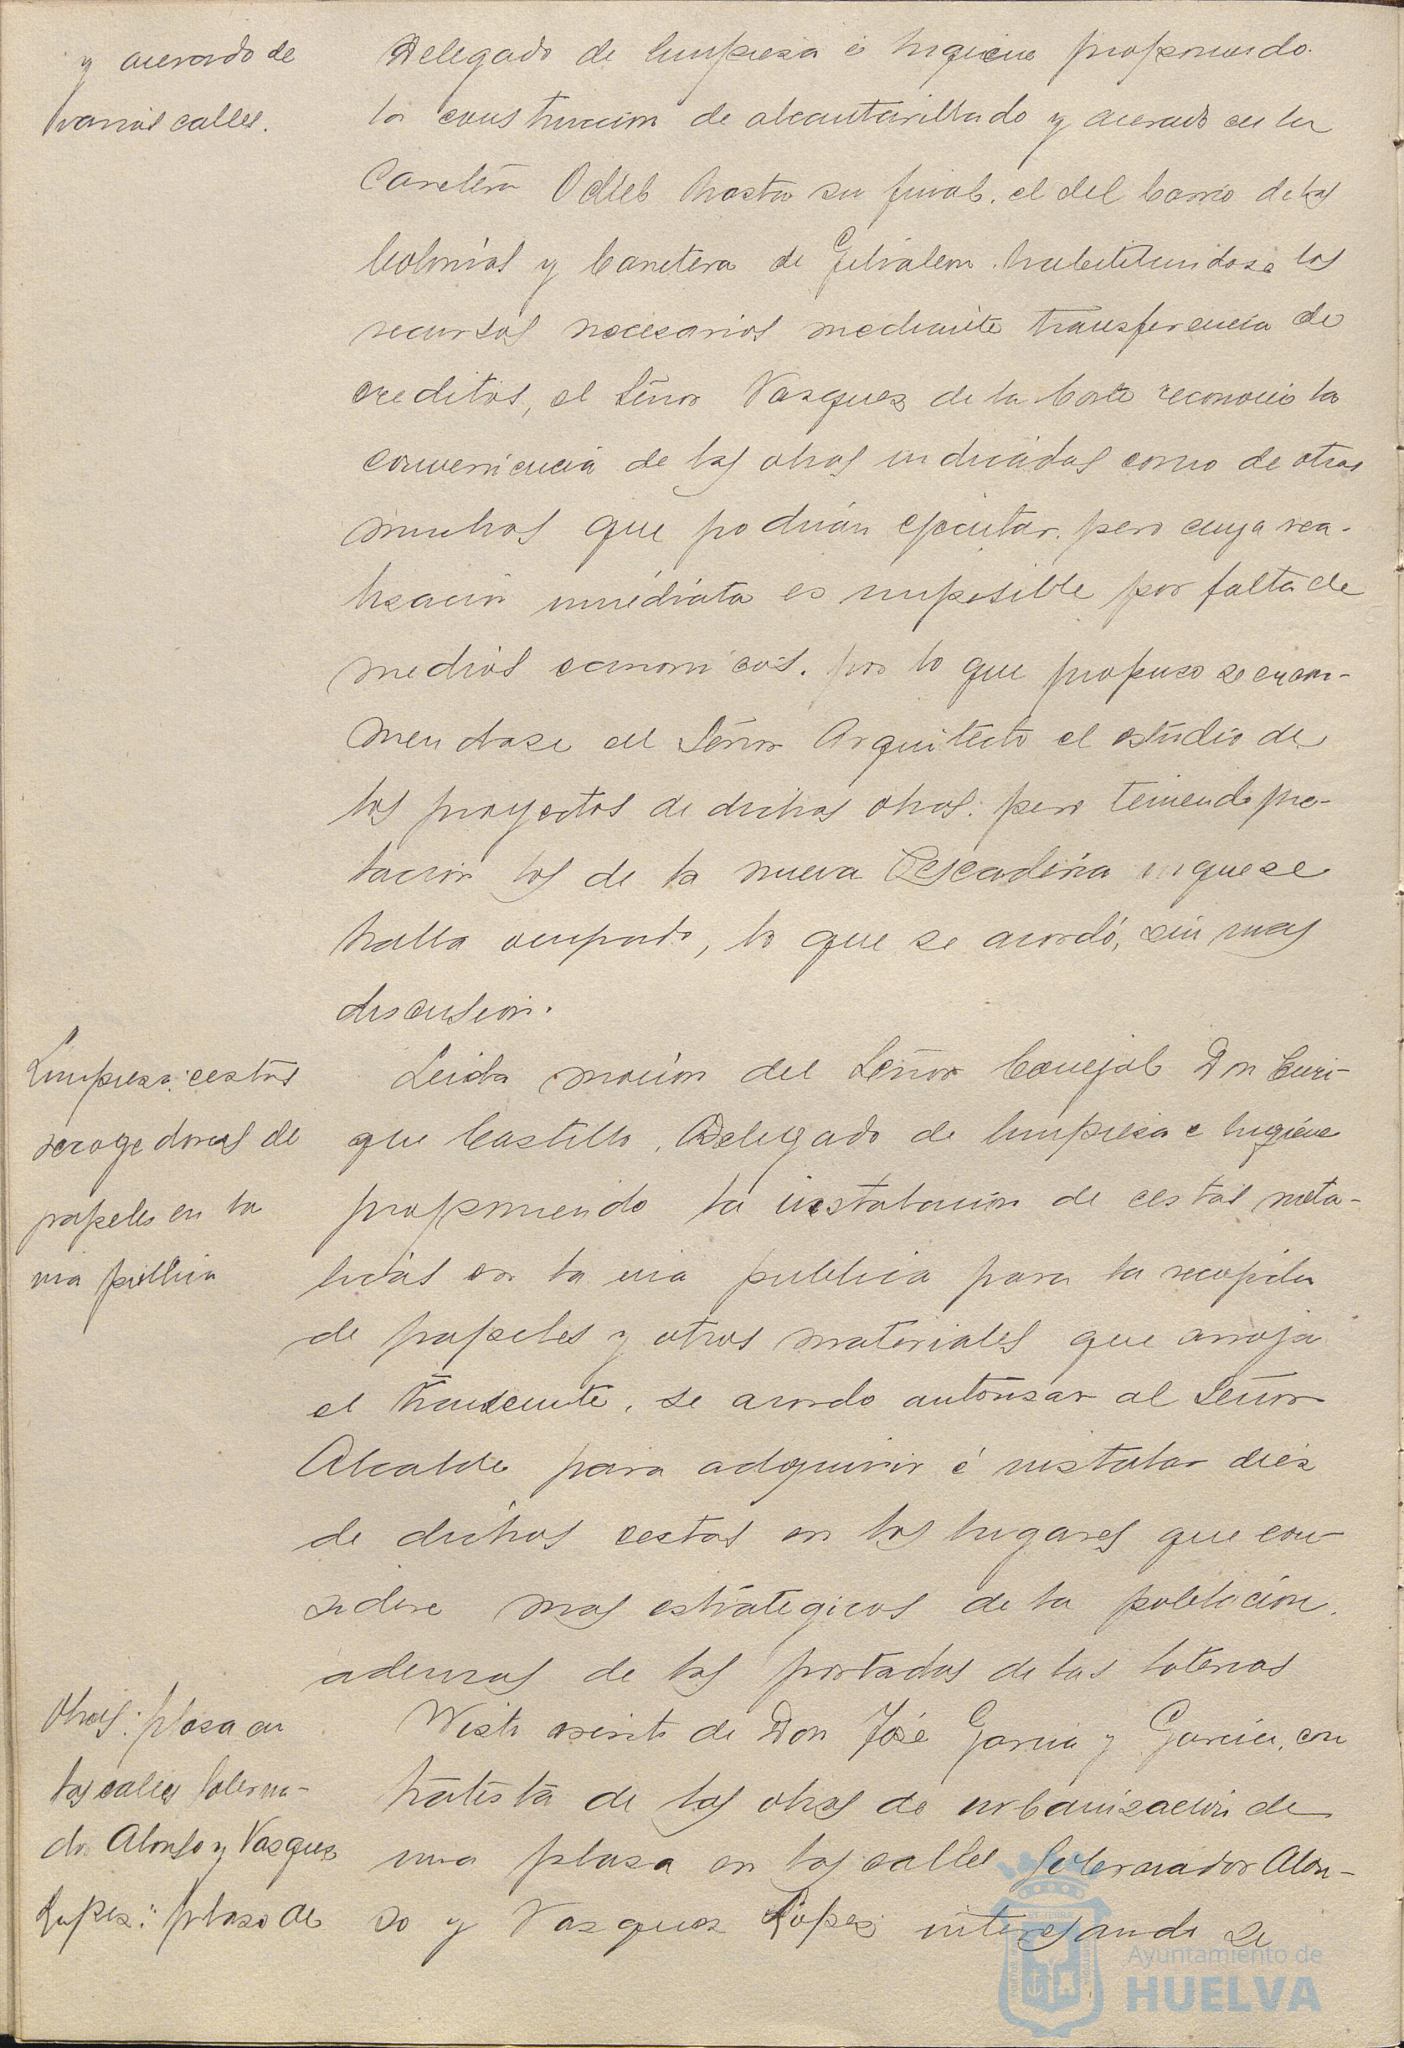 y acerado de
varias calles.
Delegado de limpieza é higiene proponiendo
la construccion de alcantarillado y acerado en la
Carretera Odiel hasta su final, el del barrio de las
Colonias y Carretera de Gibraleon habilitandose los
recursos necesarios mediante transferencia de
creditos, el Señor Vazquez de la Corte reconocio la
conveniencia de las obras indicadas como de otras
muchas que podrian ejecutar, pero cuya rea-
lizacion inmediata es imposible por falta de
medios economicos, por lo que propuso se encom-
mendase al Señor Arquitecto el estudio de
los proyectos de dichas obras, pero teniendo pre-
lacion los de la nueva Pescaderia en que se
halla ocupado, lo que se acordó, sin mas
discusion.
Limpieza: cestas
recogedoras de
papeles en la
via publica
Leida mocion del Señor Concejal Don Enri-
que Castillo, Delegado de limpieza e higiene
proponiendo la instalacion de cestas meta-
licas en la via publica para la recogida
de papeles y otros materiales que arroja
el transeunte, se acordo autorizar al Señor
Alcalde para adquirir é instalar diez
de dichas cestas en los lugares que con-
sidere mas estrategicos de la poblacion,
ademas de las portadas de las loterias
Obras: plaza en
las calles Goberna-
dor Alonso y Vazquez
Lopez: plazo de
Visto escrito de Don José Garcia y Garcia, con
tratista de las obras de urbanizacion de
una plaza en las calles Gobernador Alon-
so y Vazquez Lopez interesando se
Ayuntamiento de
HUELVA